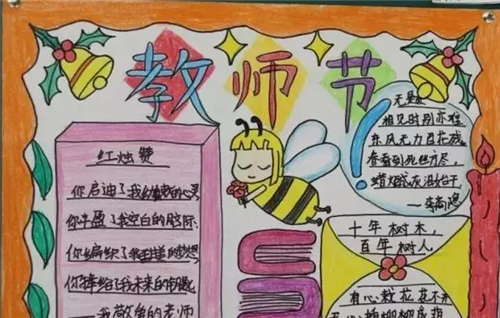 教师节
红烛赞
你启迪了我幼稚的心灵
你丰盈了我空白的脑际
你编织了我的梦想
你捧给了我未来的钥匙
我敬爱的老师
无题
相见时别亦难
东风无力百花残
春蚕到死丝方尽，
蜡炬成灰泪始干
——李商隐
十年树木，
百年树人
有心栽花花不开